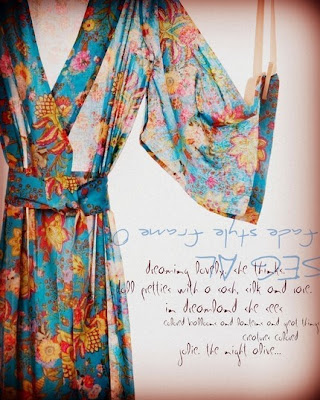 fade style frame
dreaming lovely, she thinks
pretties with a sash, silk and love.
in dreamland she sees
colored balloons and lanterns and great things
creatures colored
jolie. the night alive...